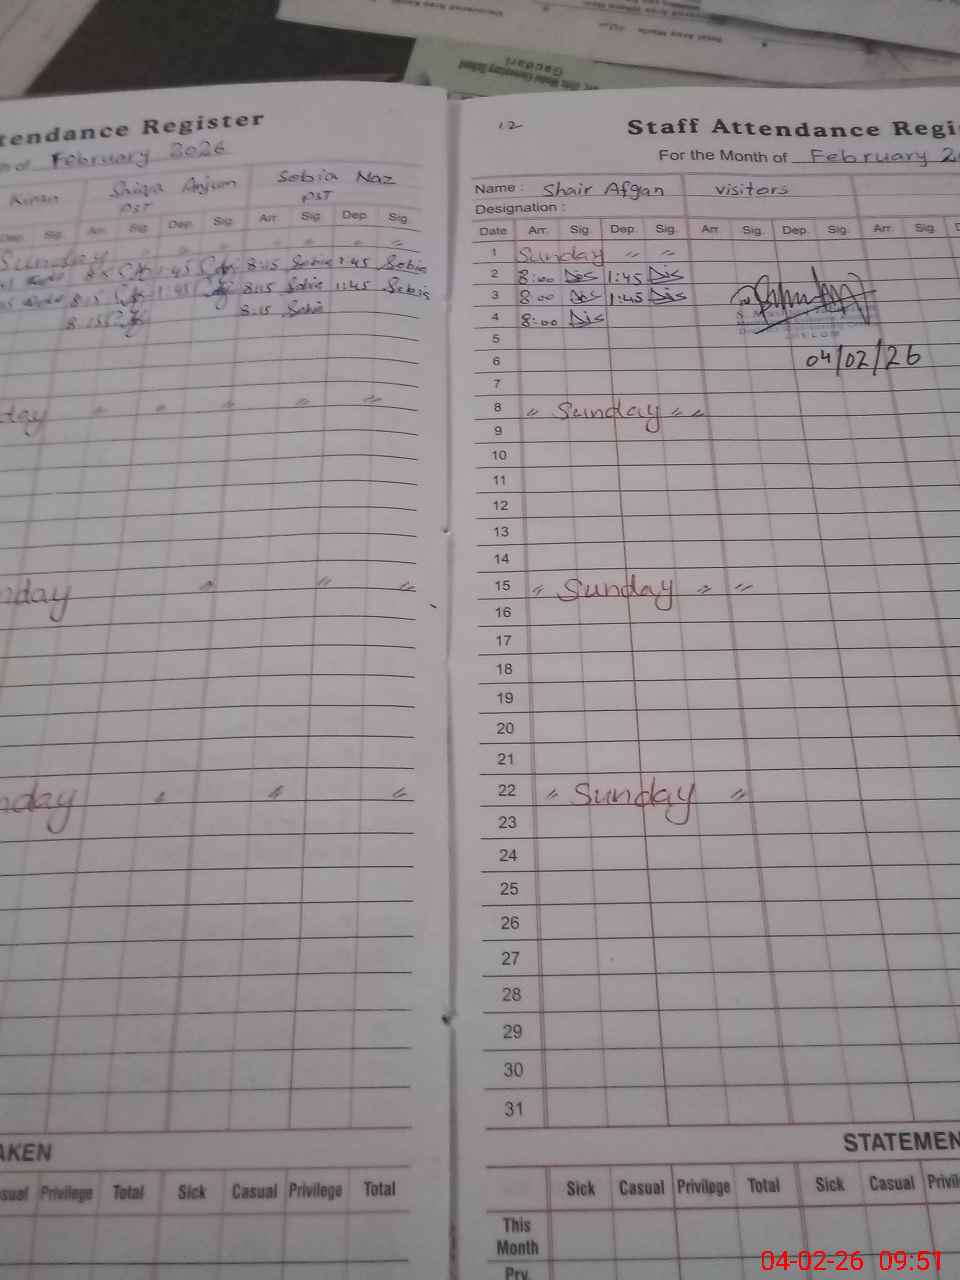 Gaddari
tendance Register
February 2026
Kiran Shiza Anjum Sobia Naz
PST PST
Dep. Sig. Arr. Sig. Dep. Sig. Arr. Sig. Dep. Sig.
Sunday
8:15 1:45 8:15 Sobia 1:45 Sobia
8:15 1:45 8:15 Sobia 1:45 Sobia
8:15 8:15 Sobia
day
nday
nday
AKEN
sual Privilege Total Sick Casual Privilege Total
12
Staff Attendance Regi
For the Month of February 2
Name : Shair Afgan visitors
Designation :
Date Arr. Sig. Dep. Sig. Arr. Sig. Dep. Sig. Arr. Sig. D
1 Sunday " "
2 8:00 1:45
3 8:00 1:45
4 8:00
5
6 04/02/26
7
8 " Sunday " "
9
10
11
12
13
14
15 " Sunday " "
16
17
18
19
20
21
22 " Sunday "
23
24
25
26
27
28
29
30
31
STATEMEN
Sick Casual Privilege Total Sick Casual Privil
This
Month
Prv.
04-02-26 09:51